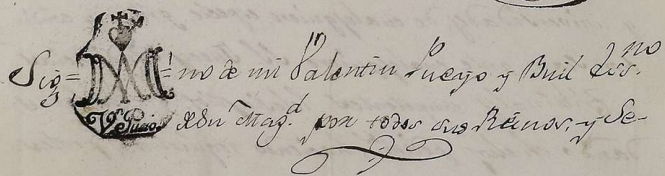 Sig= =no de mi Valentin Pueyo y Buil Ess.no
Vn Pueio de Su Mag.d por todos sus Reinos, y Se-